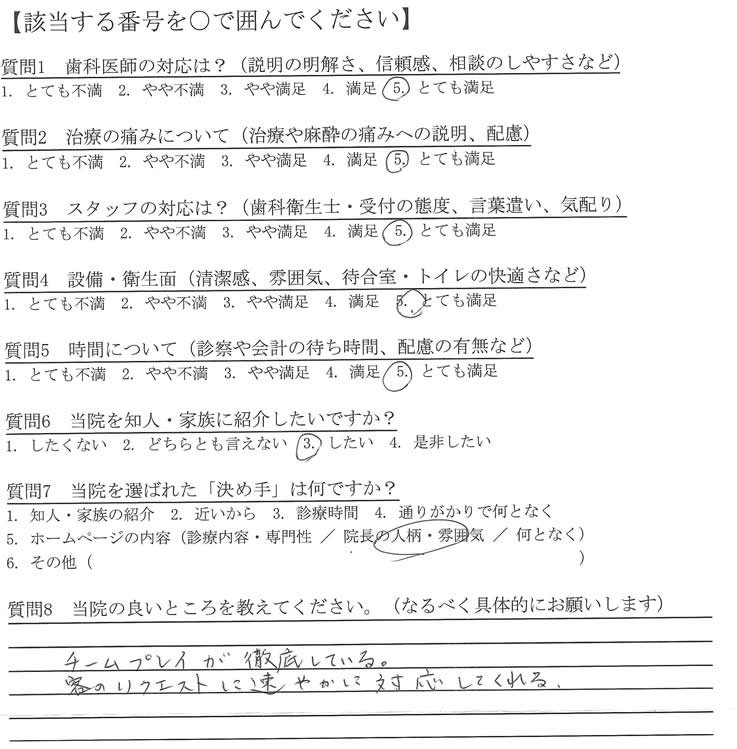 【該当する番号を○で囲んでください】
質問1 歯科医師の対応は?(説明の明解さ、信頼感、相談のしやすさなど)
1. とても不満 2. やや不満 3. やや満足 4. 満足 5. とても満足
質問2 治療の痛みについて(治療や麻酔の痛みへの説明、配慮)
1. とても不満 2. やや不満 3. やや満足 4. 満足 5. とても満足
質問3 スタッフの対応は?(歯科衛生士・受付の態度、言葉遣い、気配り)
1. とても不満 2. やや不満 3. やや満足 4. 満足 5. とても満足
質問4 設備・衛生面(清潔感、雰囲気、待合室・トイレの快適さなど)
1. とても不満 2. やや不満 3. やや満足 4. 満足 5. とても満足
質問5 時間について(診察や会計の待ち時間、配慮の有無など)
1. とても不満 2. やや不満 3. やや満足 4. 満足 5. とても満足
質問6 当院を知人・家族に紹介したいですか?
1. したくない 2. どちらとも言えない 3. したい 4. 是非したい
質問7 当院を選ばれた「決め手」は何ですか?
1. 知人・家族の紹介 2. 近いから 3. 診療時間 4. 通りがかりで何となく
5. ホームページの内容(診療内容・専門性 / 院長の人柄・雰囲気 / 何となく)
6. その他( )
質問8 当院の良いところを教えてください。(なるべく具体的にお願いします)
チームプレイが徹底している。
客のリクエストに速やかに対応してくれる.